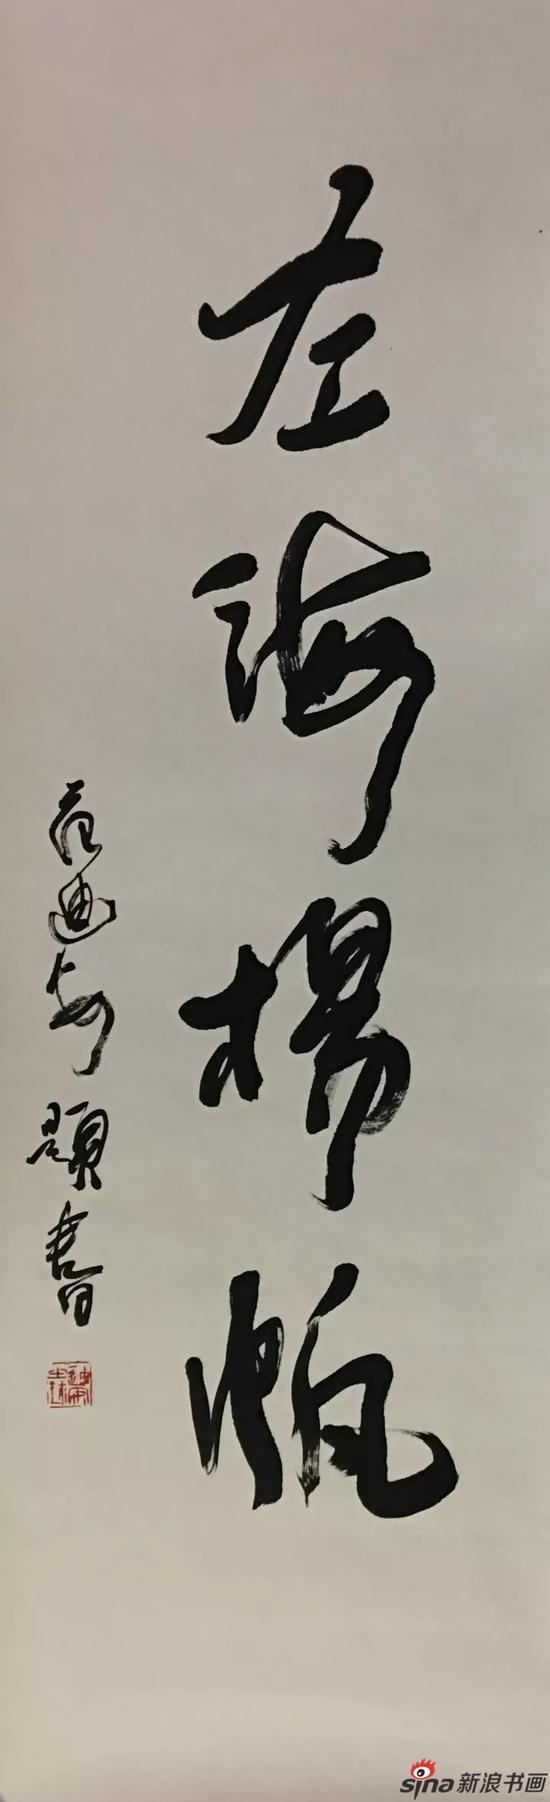 左海揚帆
范迪安題書
sina新浪书画